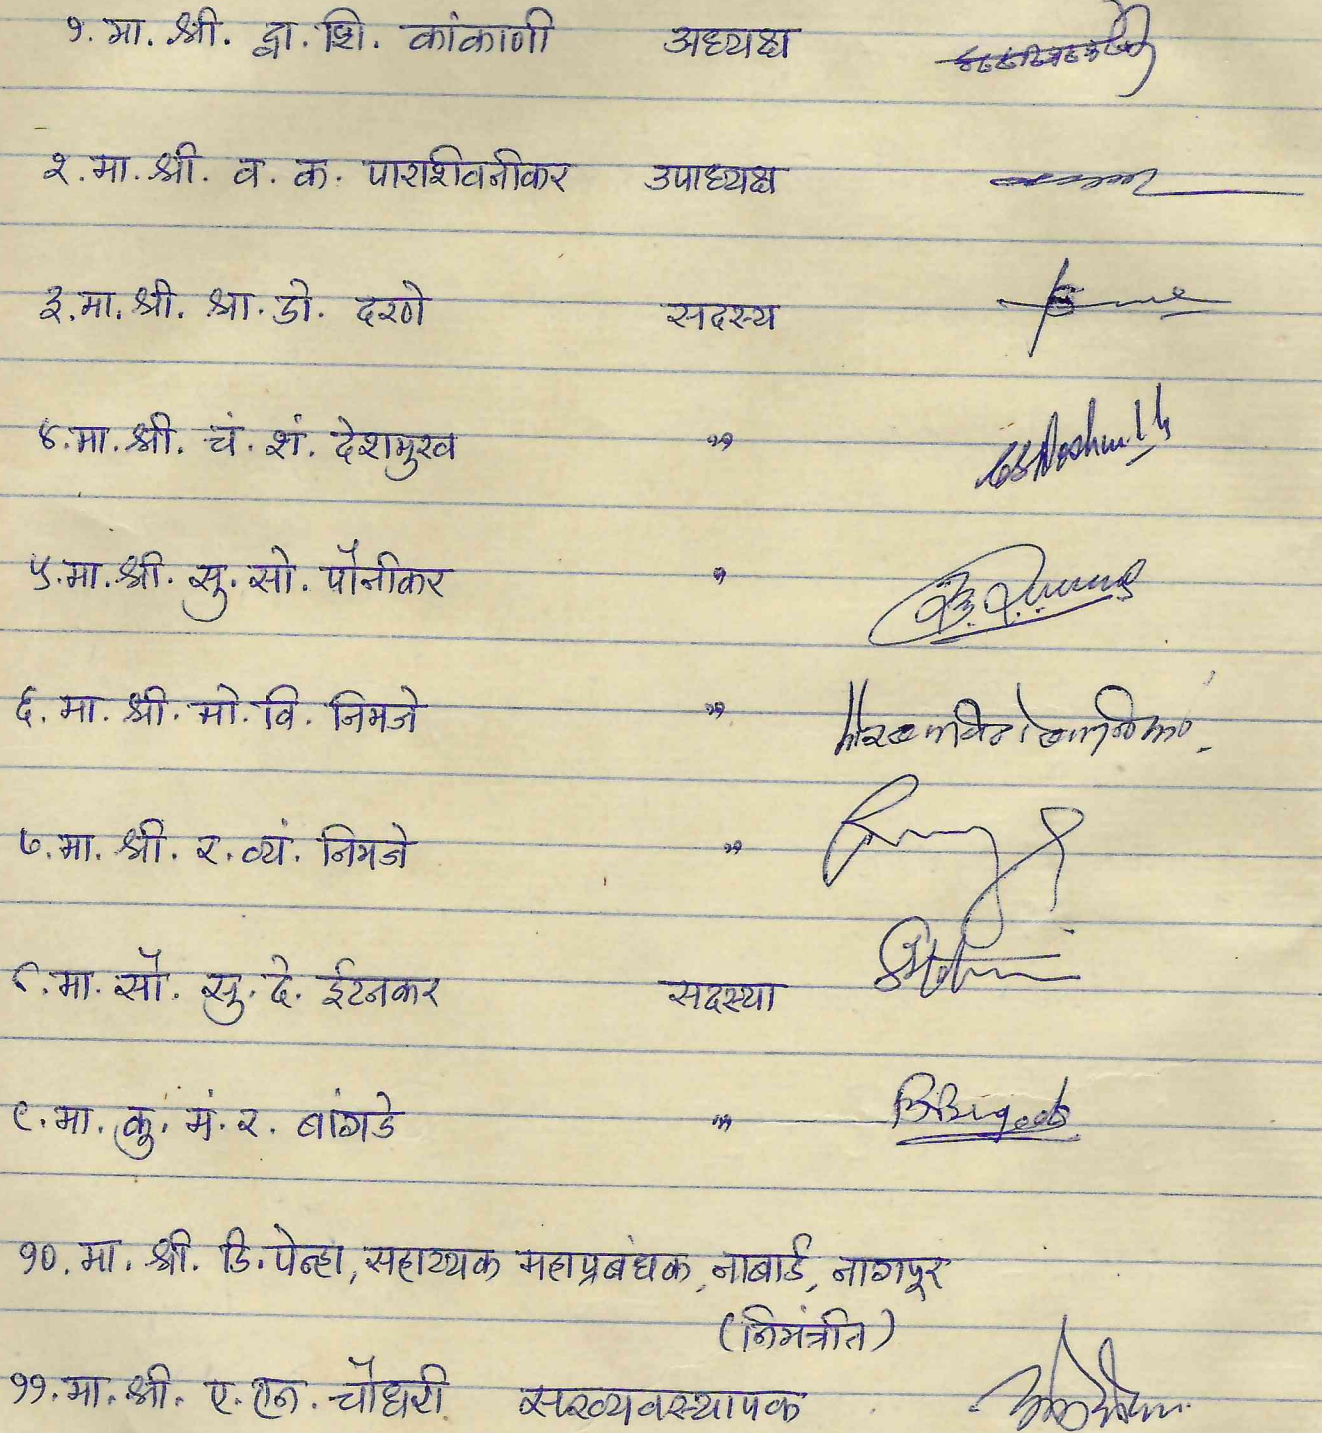 १. मा. श्री. द्वा. शि. कांकाणी अध्यक्ष
२. मा. श्री. व. क. पाराशिवनीकर उपाध्यक्ष
३. मा. श्री. श्रा. डो. दरणे सदस्य
४. मा. श्री. चं. शं. देशमुख "
५. मा. श्री. सु. सो. पौनीकर "
६. मा. श्री. मो. वि. निमजे "
७. मा. श्री. र. व्यं. निमजे "
८. मा. सौ. सु. दे. ईटनकर सदस्या
९. मा. कु. मं. र. बांगडे "
१०. मा. श्री. डि. पेन्हा, सहाय्यक महाप्रबंधक, नाबार्ड, नागपूर
(निमंत्रीत)
११. मा. श्री. ए. एन. चौधरी सरव्यवस्थापक